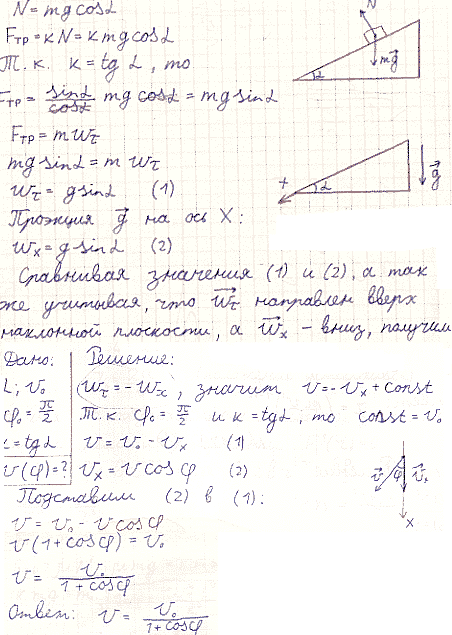 N = mg cosα
Fтр = кN = к mg cosα
Т.к. к = tgα, то
Fтр = sinα/cosα mg cosα = mg sinα
Fтр = m wτ
mg sinα = m wτ
wτ = g sinα (1)
Проэкция g⃗ на ось X:
wx = g sinα (2)
N
mg⃗
α
+
α
g⃗
Сравнивая значения (1) и (2), а так
же учитывая, что w⃗τ направлен вверх
наклонной плоскости, а w⃗x - вниз, получим
Дано:
L; v₀
φ₀ = π/2
к = tgα
v(φ) = ?
Решение:
wτ = -wx, значит v = -vx + const
Т.к. φ₀ = π/2 и к = tgα, то const = v₀
v = v₀ - vx (1)
vx = v cosφ (2)
Подставим (2) в (1):
v⃗
φ
v⃗x
x
v = v₀ - v cosφ
v(1 + cosφ) = v₀
v = v₀/(1 + cosφ)
Ответ: v = v₀/(1 + cosφ)